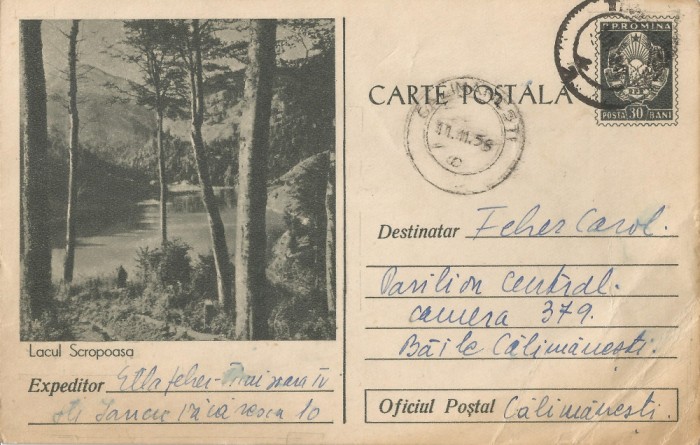 R.P.ROMINA
POSTA 30 BANI
CARTE POSTALĂ
CĂLIMĂNEȘTI
11.11.56
Destinatar Feher Carol.
Pavilion Central.
camera 379.
Băile Călimănești.
Oficiul Poștal Călimănești.
Lacul Scropoasa
Expeditor Etla feher
str Iancu
10